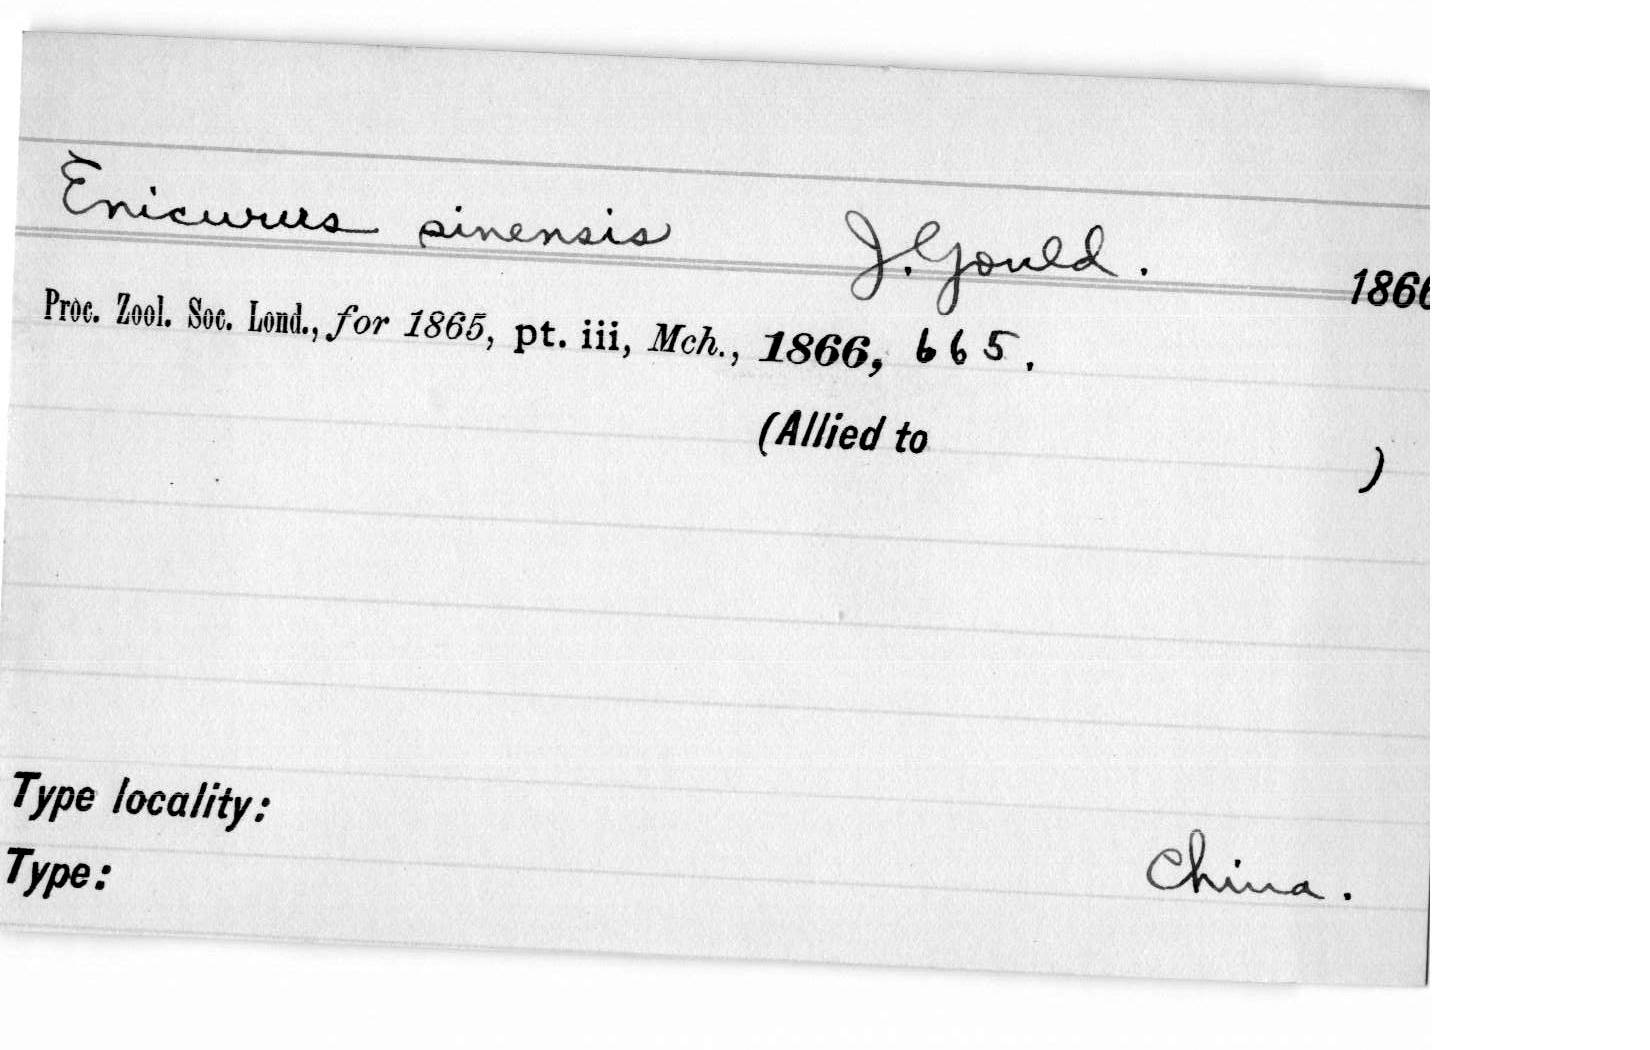 Enicurus sinensis J. Gould. 1866
Proc. Zool. Soc. Lond., for 1865, pt. iii, Mch., 1866, 665.
(Allied to )
Type locality:
Type: China.